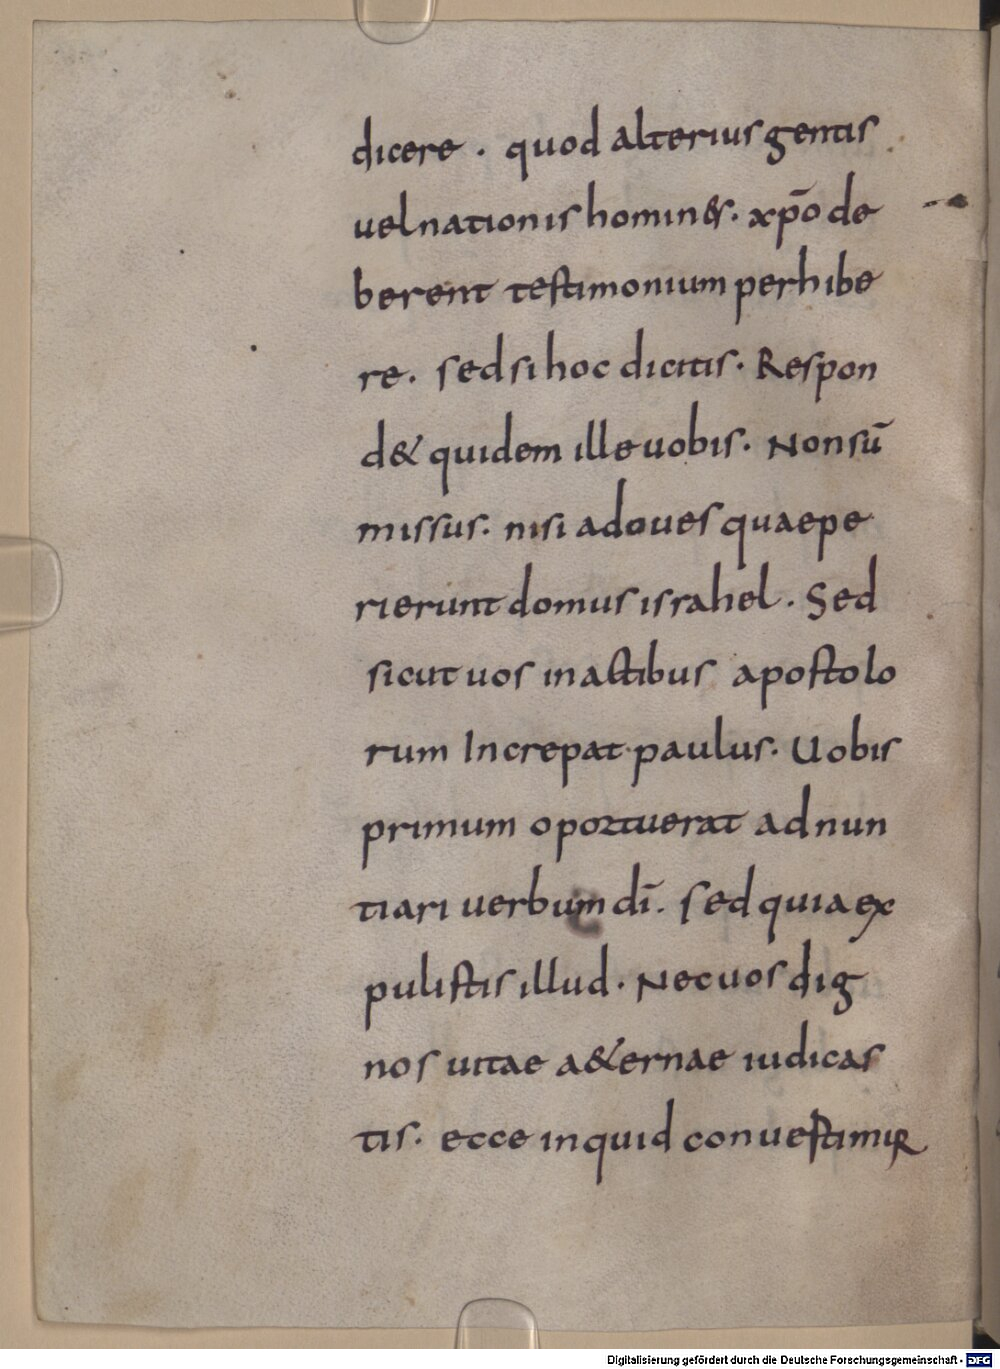 dicere . quod alterius gentis
uel nationis homin&s. xp̄o de
berent testimonium perhibe
re. sed si hoc dicitis. Respon
d& quidem ille uobis. Non sū
missus. nisi ad oues quae pe
rierunt domus israhel. Sed
sicut uos in actibus apostolo
rum Increpat paulus. Uobis
primum oportuerat adnun
tiari uerbum dī. sed quia ex
pulistis illud. Nec uos dig
nos uitae a&ernae iudicas
tis. ecce inquid conuestimur
Digitalisierung gefördert durch die Deutsche Forschungsgemeinschaft - DFG